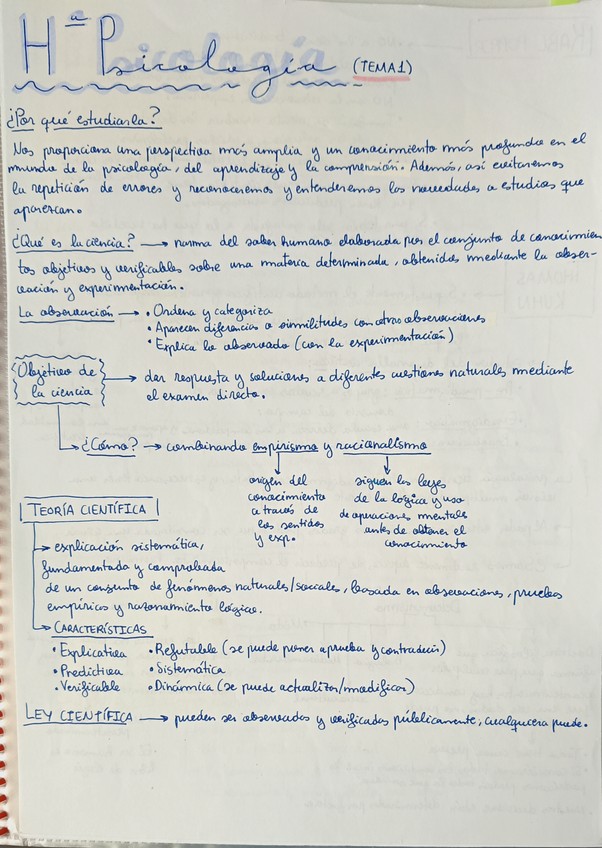 Hª Psicología (TEMA 1)
¿Por qué estudiarla?
Nos proporciona una perspectiva más amplia y un conocimiento más profundo en el
mundo de la psicología, del aprendizaje y la comprensión. Además, así evitaremos
la repetición de errores y reconoceremos y entenderemos las novedades o estudios que
aparezcan.
¿Qué es la ciencia? → norma del saber humano elaborada por el conjunto de conocimien
tos objetivos y verificables sobre una materia determinada, obtenidos mediante la obser-
vación y experimentación.
La observación → • Ordena y categoriza
• Aparecen diferencias o similitudes con otras observaciones
• Explica lo observado (con la experimentación)
Objetivo de
la ciencia → dar respuesta y soluciones a diferentes cuestiones naturales mediante
el examen directo.
¿Cómo? → combinando empirismo y racionalismo
origen del
conocimiento
a través de
los sentidos
y exp.
siguen las leyes
de la lógica y uso
de operaciones mentales
antes de obtener el
conocimiento
TEORÍA CIENTÍFICA
→ explicación sistemática,
fundamentada y comprobada
de un conjunto de fenómenos naturales/sociales, basada en observaciones, pruebas
empíricas y razonamiento lógico.
→ CARACTERÍSTICAS
• Explicativa • Refutable (se puede poner a prueba y contradecir)
• Predictiva • Sistemática
• Verificable • Dinámica (se puede actualizar/modificar)
LEY CIENTÍFICA → pueden ser observadas y verificadas públicamente, cualquiera puede.